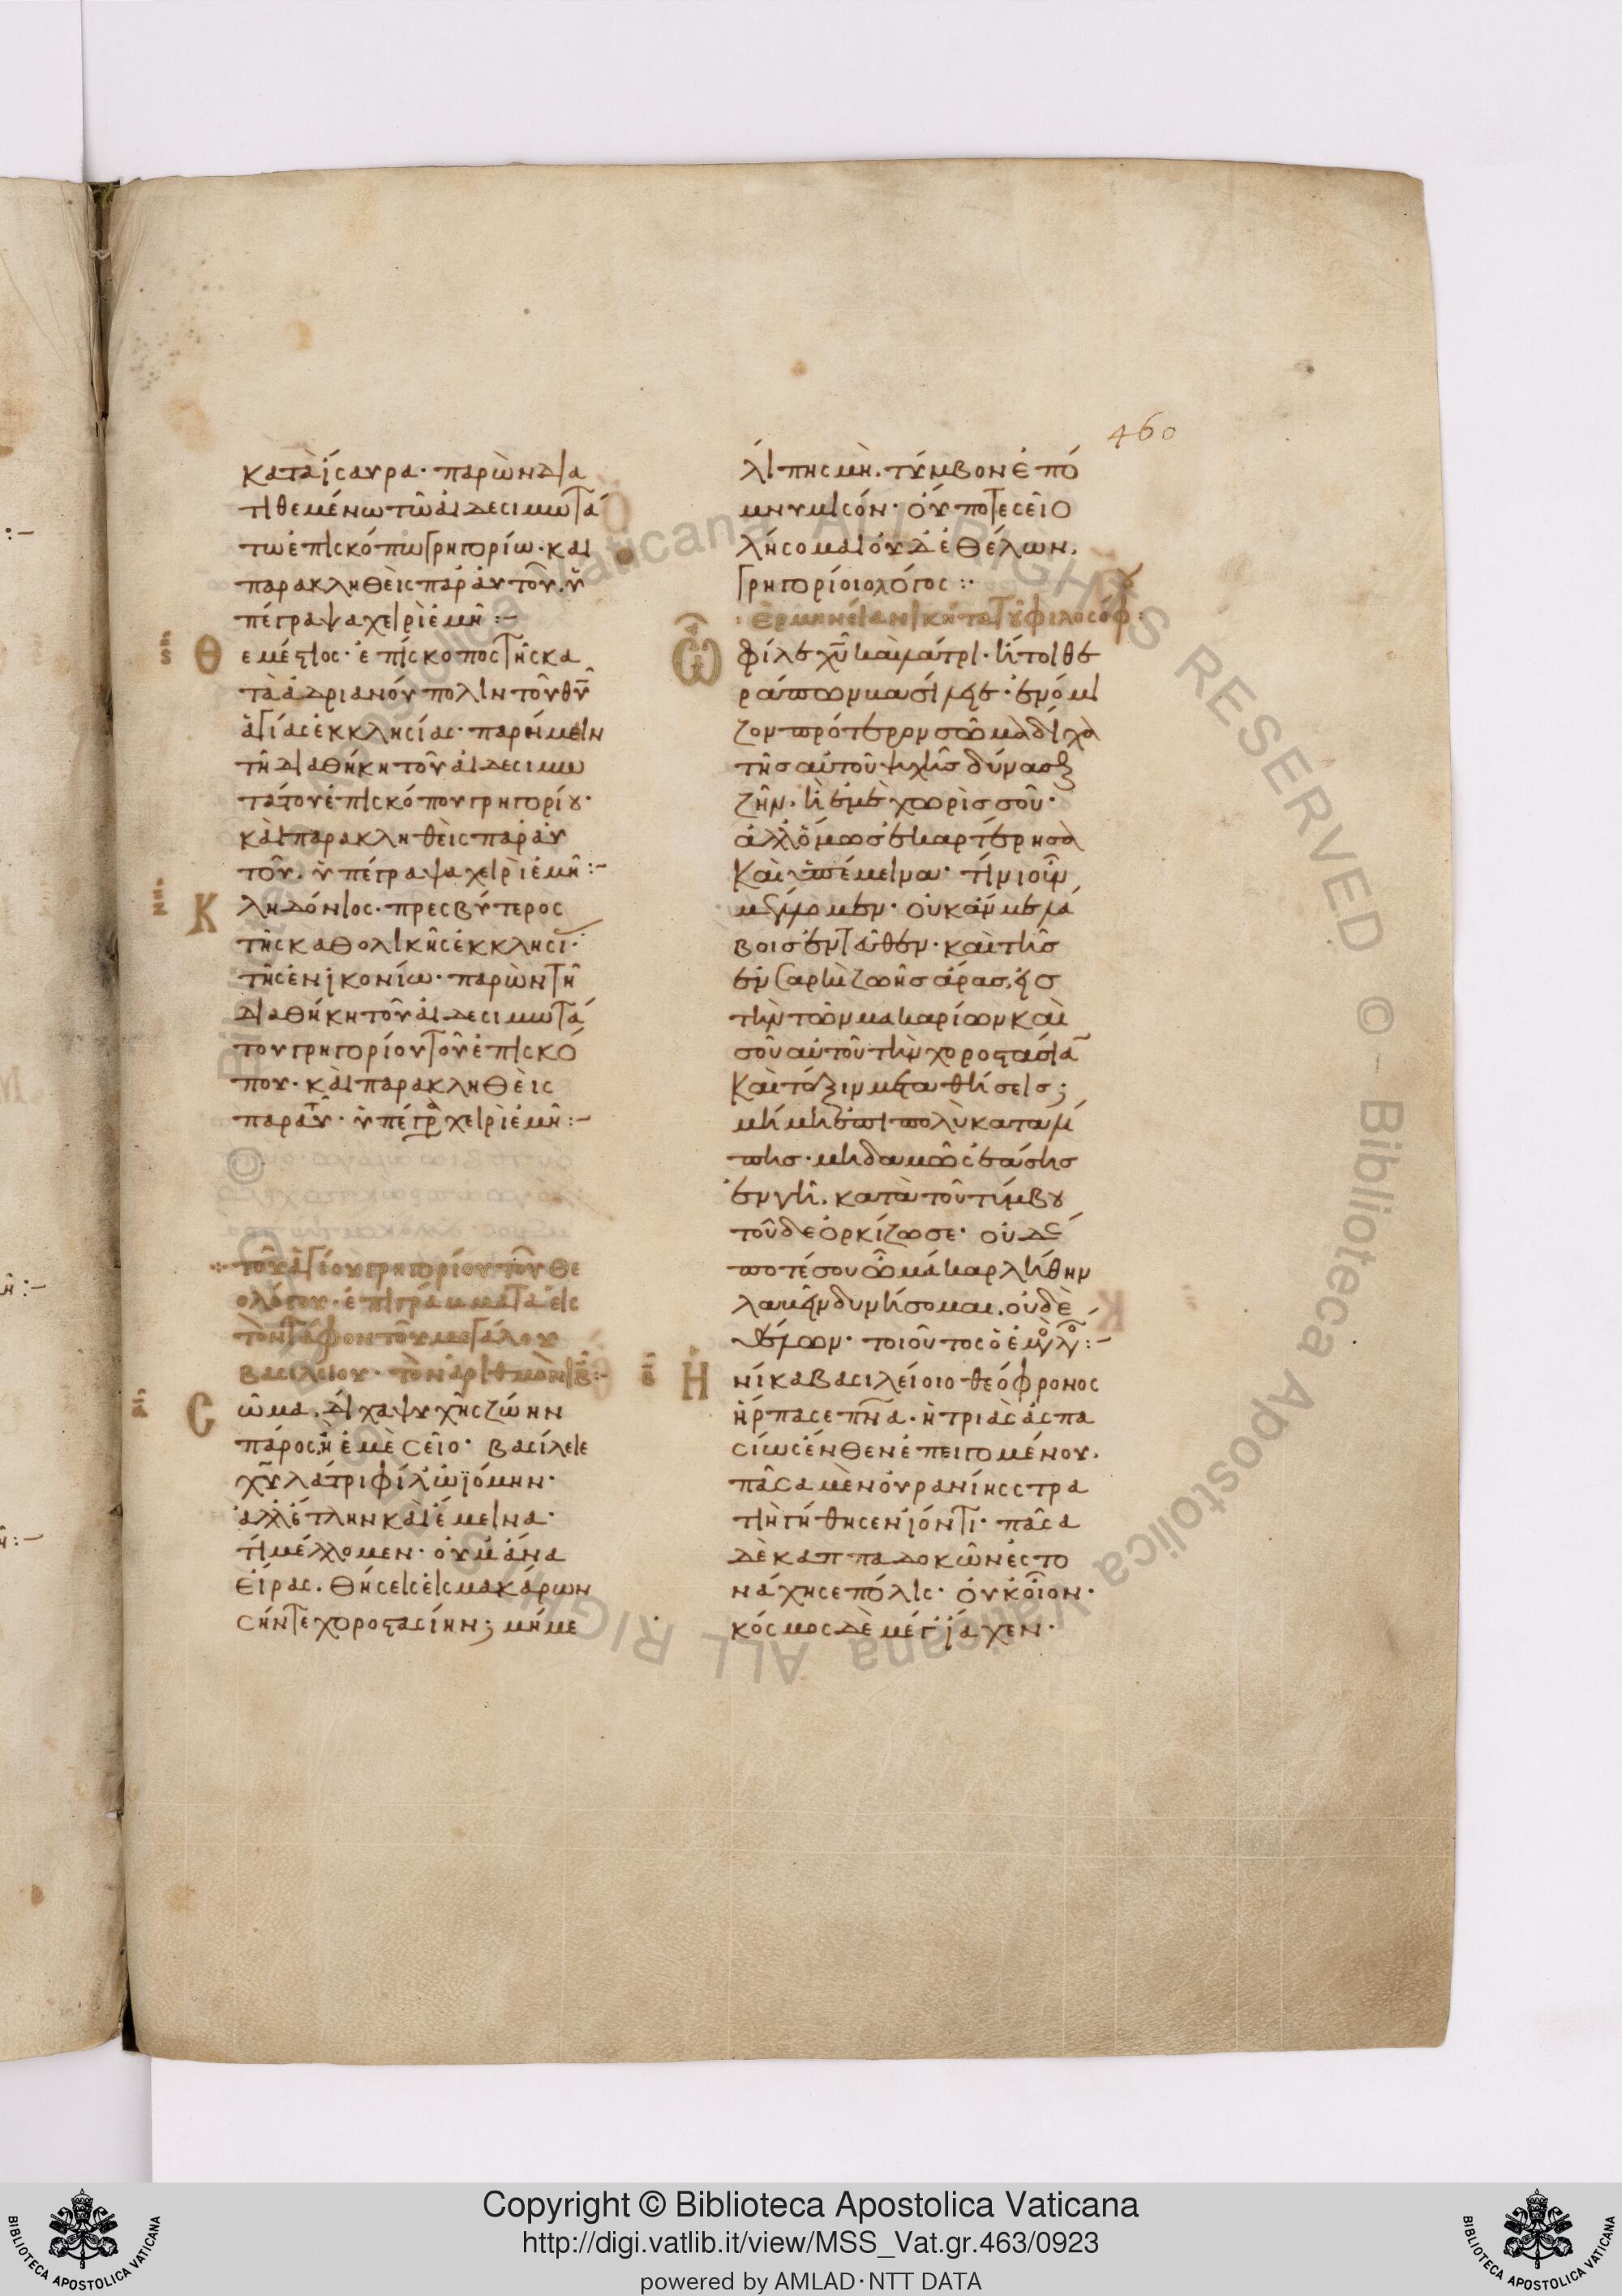 460
κατὰ ἴσαυρα· παρὼν δια
τιθεμένω τῶ αἰδεσιμωτά
τω ἐπισκόπω γρηγορίω· και
παρακληθεὶς παρ' ἀυτοῦ. ὑ
πέγραψα χειρὶ ἐμῆ :–
ς Θ
εμέστιος· ἐπίσκοπος τῆς κα
τὰ ἀδριανούπολιν τοῦ θῦ
ἁγίας ἐκκλησίας· παρήμειν
τῆ διαθήκη τοῦ ἀιδεσιμω
τάτου ἐπισκόπου γρηγορίου·
κὰι παρακληθεὶς παρ' ἀυ
τοῦ. ὑπέγραψα χειρὶ ἐμῆ :–
ζ Κ
ληδόνιος· πρεσβύτερος
τῆς καθολικῆς ἐκκλησι·
τῆς ἐν ἰκονίω· παρὼν τῆ
διαθήκη τοῦ ἀιδεσιμωτά
του γρηγορίου τοῦ ἐπισκό
που· κὰι παρακληθεὶς
παρ' αυτοῦ· ὑπέγρα χειρὶ ἐμῆ :–
τοῦ ἁγίου γρηγορίου τοῦ θε
ολόγου· ἐπιγράμματα εἰς
τὸν τάφον τοῦ μεγάλου
βασιλείου· τὸν ἀριθμὸν ιβ :–
α C
ῶμα. δίχα ψυχῆς ζώην
πάρος, ἢ ἐμὲ σεῖο· βασίλειε
χῦ λάτρι φίλ' ὠϊόμην·
ἀλλ' ἔτλην κὰι ἔμεινα·
τί μέλλομεν· οὐ μ' ἀνα
είρας. θήσεις ἐις μακάρων
σήν τε χοροστασίην; μή με
λίπης μὴ. τύμβον ἐπό
μνυμι σόν· ὄυ ποτε σεῖο
λήσομαι ὀυδ' ἐθέλων.
γρηγορίοιο λόγος :·
ἑρμηνεία νικήτα τοῦ φιλοσόφ :
Ὦ
φίλε χῦ καὶ λάτρι· ἤτοι θε
ράπων καὶ βασίλειε· ἐνόμι
ζον πρότερον σῶμα δίχα
τῆς αὐτοῦ ψυχῆς δύνασθ
ζῆν. ἢ ἐμὲ χωρὶς σοῦ·
ἀλλ' ὅμως ἐκαρτέρησα
καὶ ὑπέμεινα· τί νιοῦν
μέλλομεν· οὐκ ἄν με λά
βοις ἐνταῦθεν· καὶ τῆς
ἐν σαρκὶ ζωῆς ἄρας, εἰς
τὴν τῶν μακαρίων καὶ
σοῦ αὐτοῦ τὴν χοροστασία
καὶ τάξιν με καθήσεις;
μή μὴ ἐπιπολὺ καταλί
πης· μηδαμῶς ἐάσης
ἐν γῆ. κατὰ τοῦ τύμβου
τοῦδε ὁρκίζω σε· οὐδέ
ποτέ σου ὦ μάκαρ λήθην
λαβεῖν δυνήσομαι. οὐδὲ
θέλων· τοιοῦτος ὁ ἐμὸς λόγος :–
β Ἡ
νίκα βασιλείοιο θεόφρονος
ἥρπασε πνα· ἡ τριὰς ἀσπα
σίως ἔνθεν ἐπειγομένου.
πᾶσα μὲν ὀυρανίης στρα
τιὴ γήθησεν ἰόντι· πᾶσα
δὲ καππαδοκῶν ἐστο
νάχησε πόλις· ὀυκ ὀῖον·
κόσμος δὲ μέγ' ἴαχεν·
Copyright © Biblioteca Apostolica Vaticana
http://digi.vatlib.it/view/MSS_Vat.gr.463/0923
powered by AMLAD·NTT DATA